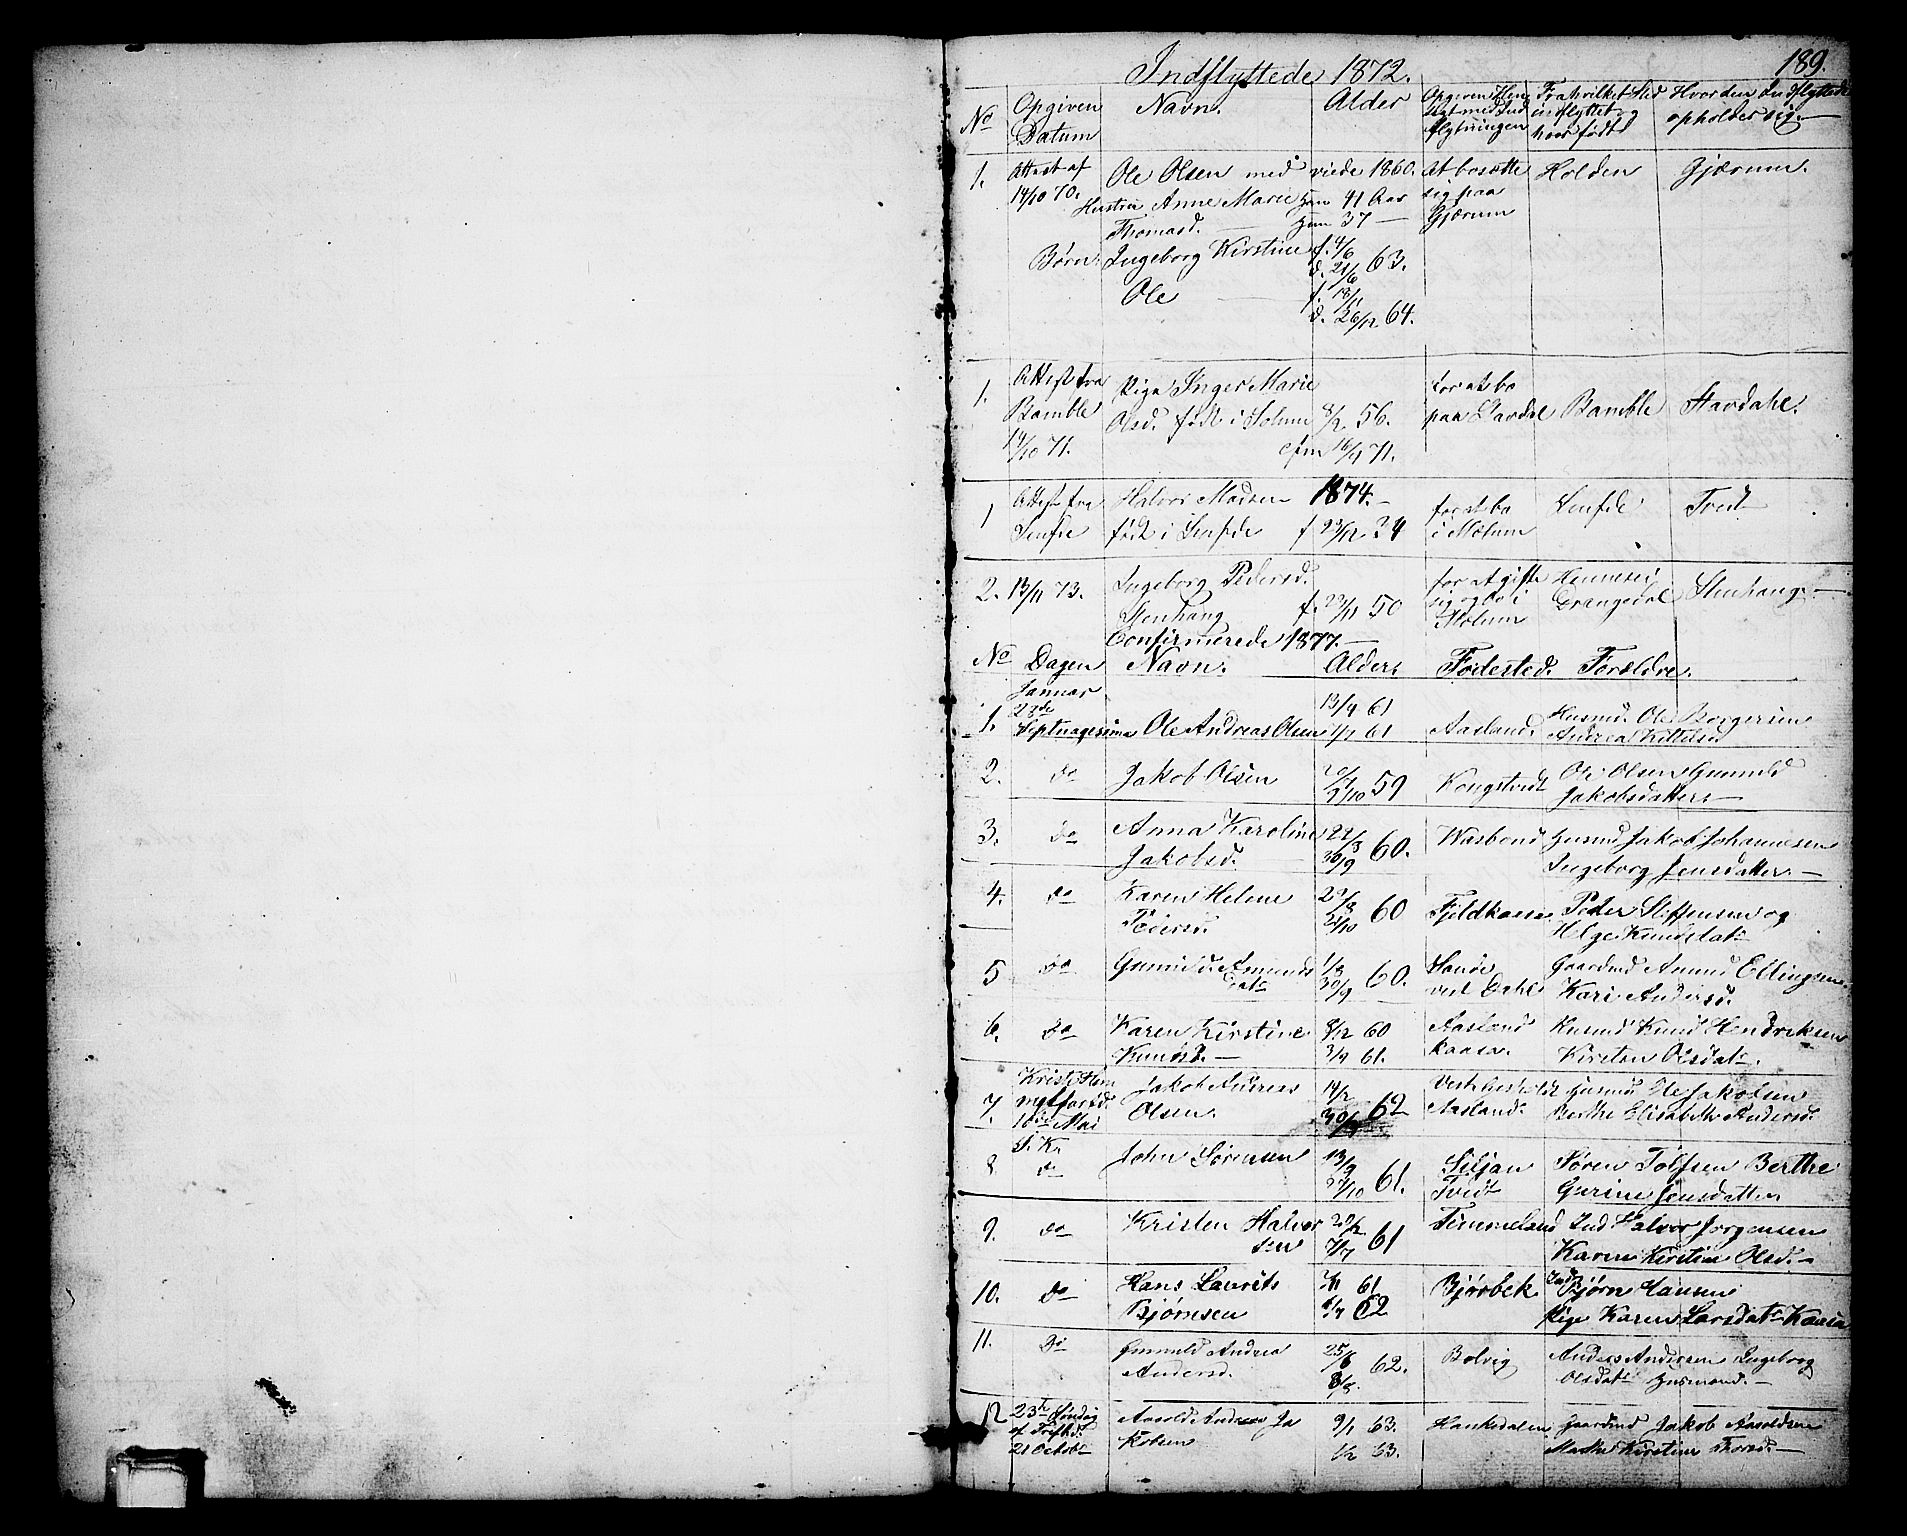 189.
Indflyttede 1872.
No Opgiven Datum Navn. Alder Opgiven Hensigt med Indflytningen Fra hvilket Sted indflyttet og hvor født Hvor den Indflyttede opholder sig.
1. Attest af 14/10 70. Ole Olsen med viede 1860. At bosætte sig paa Gjærum Holden Gjærum.
Hustru Anne Marie Thomasd. — ham 41 Aar hun 37 —
Børn: Ingeborg Kirstine f. 4/6 d. 21/6 63.
Ole — f. 18/11 d. 26/12 64.
1. Attest fra Bamble 14/10 71. Pige Inger Marie Olsd. født i Solum 8/2 56. for at bo paa Bamble
cfm
1 Attest fra Halvor Madsen 1874. — for at bo i Melum
født i f 23/12 34
2. 13/11 73. Ingeborg Pedersd. Stenhang f. 50 for at gifte sig og bo i Melum Drangedal Stenhang —
Confirmerede 1877. —
No Dagen Navn. Alder Fødested. Forældre.
1. Januar 28de Septuagesima Ole Andreas Olsen 13/4 61 61 Aasland. Husmd. Ole Borgersen Andrea Kittilsd
2. do Jakob Olsen 59 Kongstvedt Ole Olsen Gunnild Jakobsdatter —
3. do Anna Karoline Jakobsd. — 22/3 30/9 60. Wasbond Husmd Jakob Johannesen Ingeborg Jensdatter —
4. do Karen Helene Pedersd. 60 Fjeldkaasa Peder Steffensen og Helge Knudsdatr
5 do Gunnild Amunds datr 1/3 30/9 60. ved Dahl Gaardmd Amund Ellingsen Kari Andersd.
6. do Karen Kirstine Knudsd. — 8/12 60 3/4 61. Aasland kaasa. Husmd Knud Hendriksen Kirsten Olsdatr.
7. Kristi Himmelfartsd. 10de Mai Jakob Andreas Olsen 14/2 62 Aasland. Husmd Ole Jakobsen Berthe Elisabeth Andersd.
8. do John Sørensen 13/9 61. Siljan Tvedt Søren Tolfsen Berthe Gurine Jensdatter
9. do Kristen Halvorsen 7/7 61 Timmeland Ind Halvor Jørgensen Karen Kirstine Olsd. —
10. do Hans Laurits Bjørnsen 61 62 Bjørbek Ind Bjørn Hansen Pige Karen Larsdatr Kaasa
11. do Gunnild Andrea Andersd. 25/6 62. Bolvig Anders Andersen Ingeborg Olsdatr Husmand. —
12 23de Søndag ef. Trefhd. 21 Octobr Aasold Andreas Jakobsen 9/1 63. 1/2 63. Hankedalen Gaardmd Jakob Aasoldsen Kirstine Thorsd. —